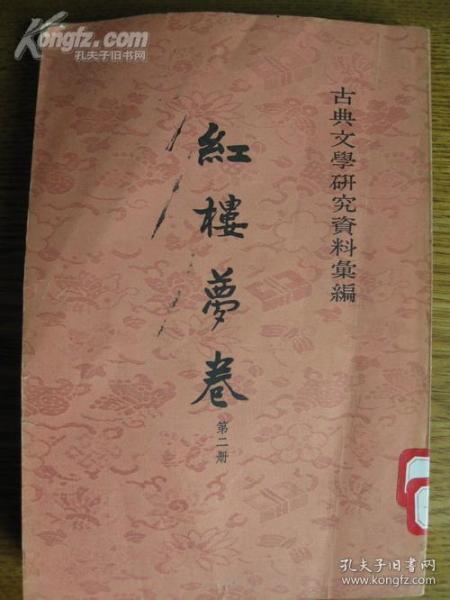 Kongfz.com
孔夫子旧书网
古典文學研究資料彙編
紅樓夢卷
第二册
孔夫子旧书网
www.kongfz.com